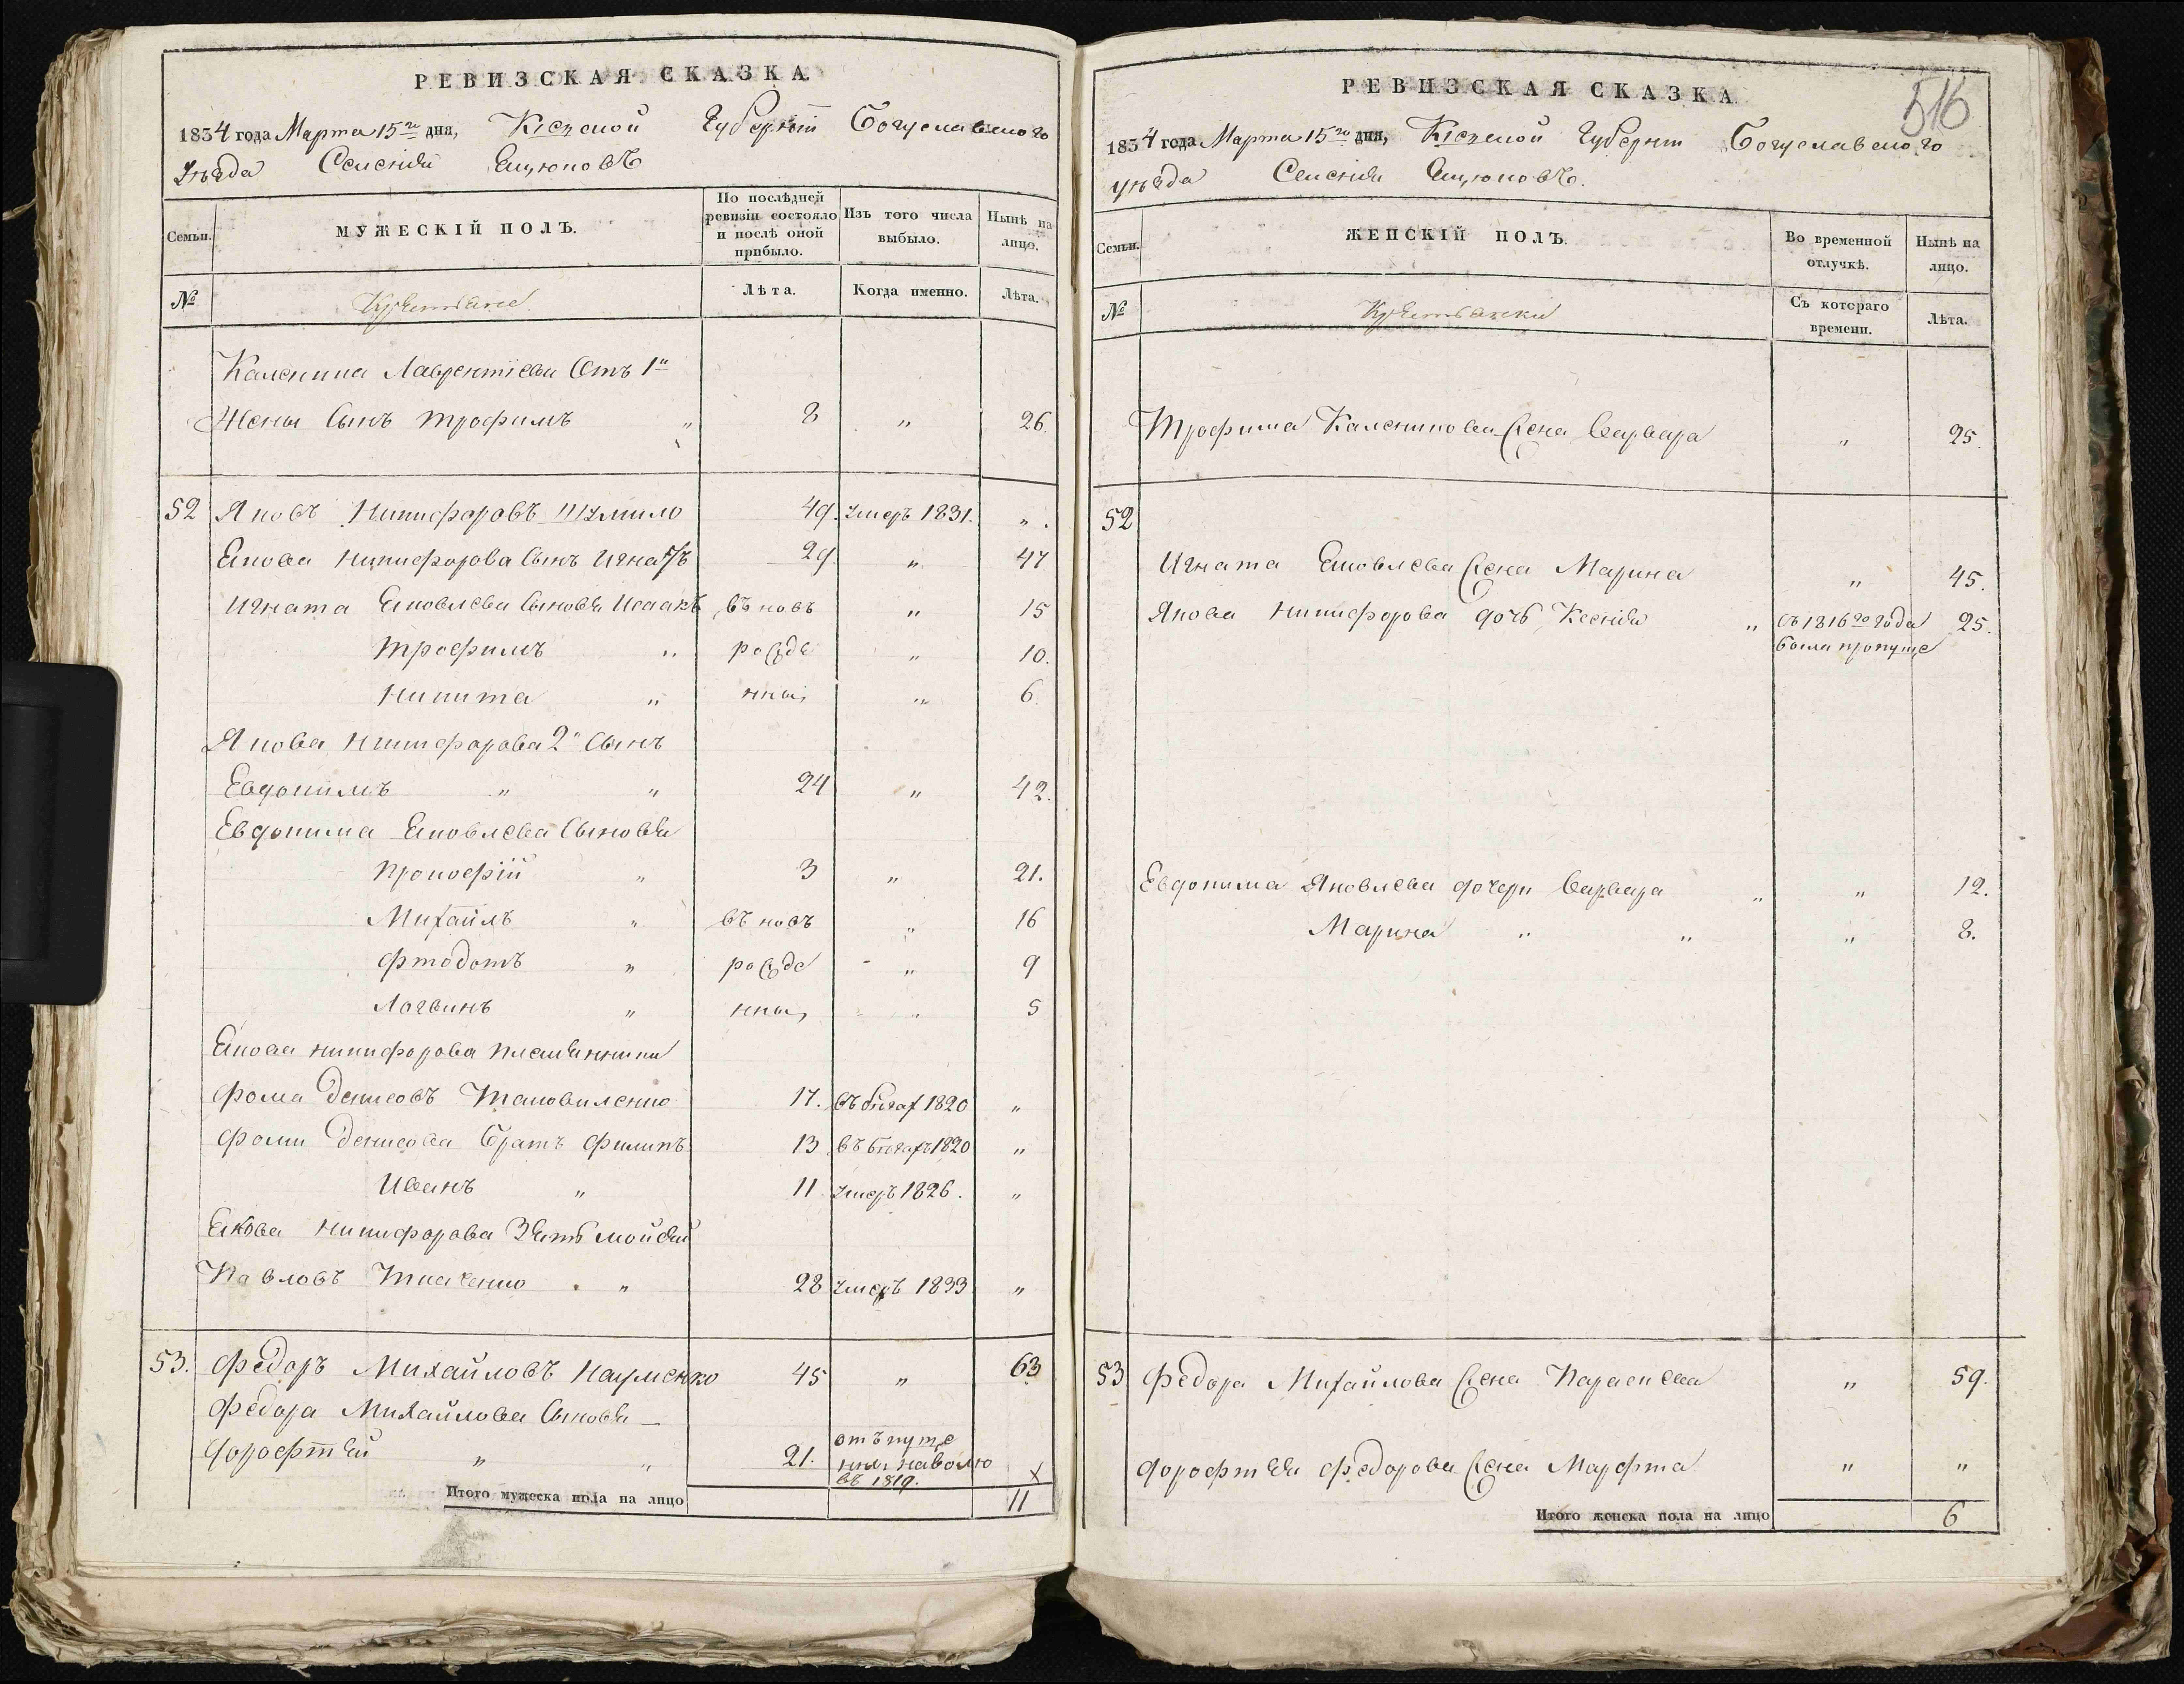 РЕВИЗСКАЯ СКАЗКА
1834 года Марта 15го дня, Кіевской Губерніи Богуславского
Уѣзда Селенія Яцюковъ
Семьи.
МУЖЕСКІЙ ПОЛЪ.
По послѣдней ревизіи состояло и послѣ оной прибыло.
Изъ того числа выбыло.
Нынѣ на лицо.
№
Крестьяне
Лѣта.
Когда именно.
Лѣта.
Каленика Лаврентіева Отъ 1й
Жены Сынъ Трофимъ " 8 " 26.
52 Яковъ Никифоровъ Шумило 49. умеръ 1831. "
Якова Никифорова Сынъ Игнатъ 29 " 47
Игната Яковлева Сыновья Исаакъ въ новъ " 15
Трофимъ " рожде " 10.
Никита " нны, " 6.
Якова Никифорова 2й Сынъ
Евдокимъ " " 24 " 42.
Евдокима Яковлева Сыновья
Прокофій " 3 " 21.
Михайлъ " въ новъ " 16
Фтодотъ " рожде " 9
Логвинъ " нны, " 5
Якова Никифорова племянники
Фома Денисовъ 17. въ бѣгах 1820 "
Фомы Денисова братъ Филипъ 13 въ бѣгахъ 1820 "
Иванъ " 11. умеръ 1826. "
Якова Никифорова Зять Мойсей
Павловъ Ткаченко " 28 умеръ 1833 "
53. Федоръ Михайловъ Науменко 45 " 63
Федора Михайлова Сыновья —
Дорофтей " " 21. отъпуще
ннъ на волю
въ 1819. х
Итого мужеска пола на лицо 11
516
РЕВИЗСКАЯ СКАЗКА
1834 года Марта 15го дня, Кіевской Губерніи Богуславского
уѣзда Селенія Яцюковъ.
Семьи.
ЖЕНСКІЙ ПОЛЪ.
Во временной отлучкѣ.
Нынѣ на лицо.
№
Крестьянки
Съ котораго времени.
Лѣта.
Трофима Каленикова жена Варвара " 25.
52
Игната Яковлева жена Марина " 45.
Якова Никифорова дочь Ксенія " съ 1816го года 25.
была пропуще
Евдокима Яковлева дочери Варвара " " 12.
Марина " " " 8.
53 Федора Михайлова жена Параскева " 59.
Дорофтея Федорова жена Марфта " "
Итого женска пола на лицо 6